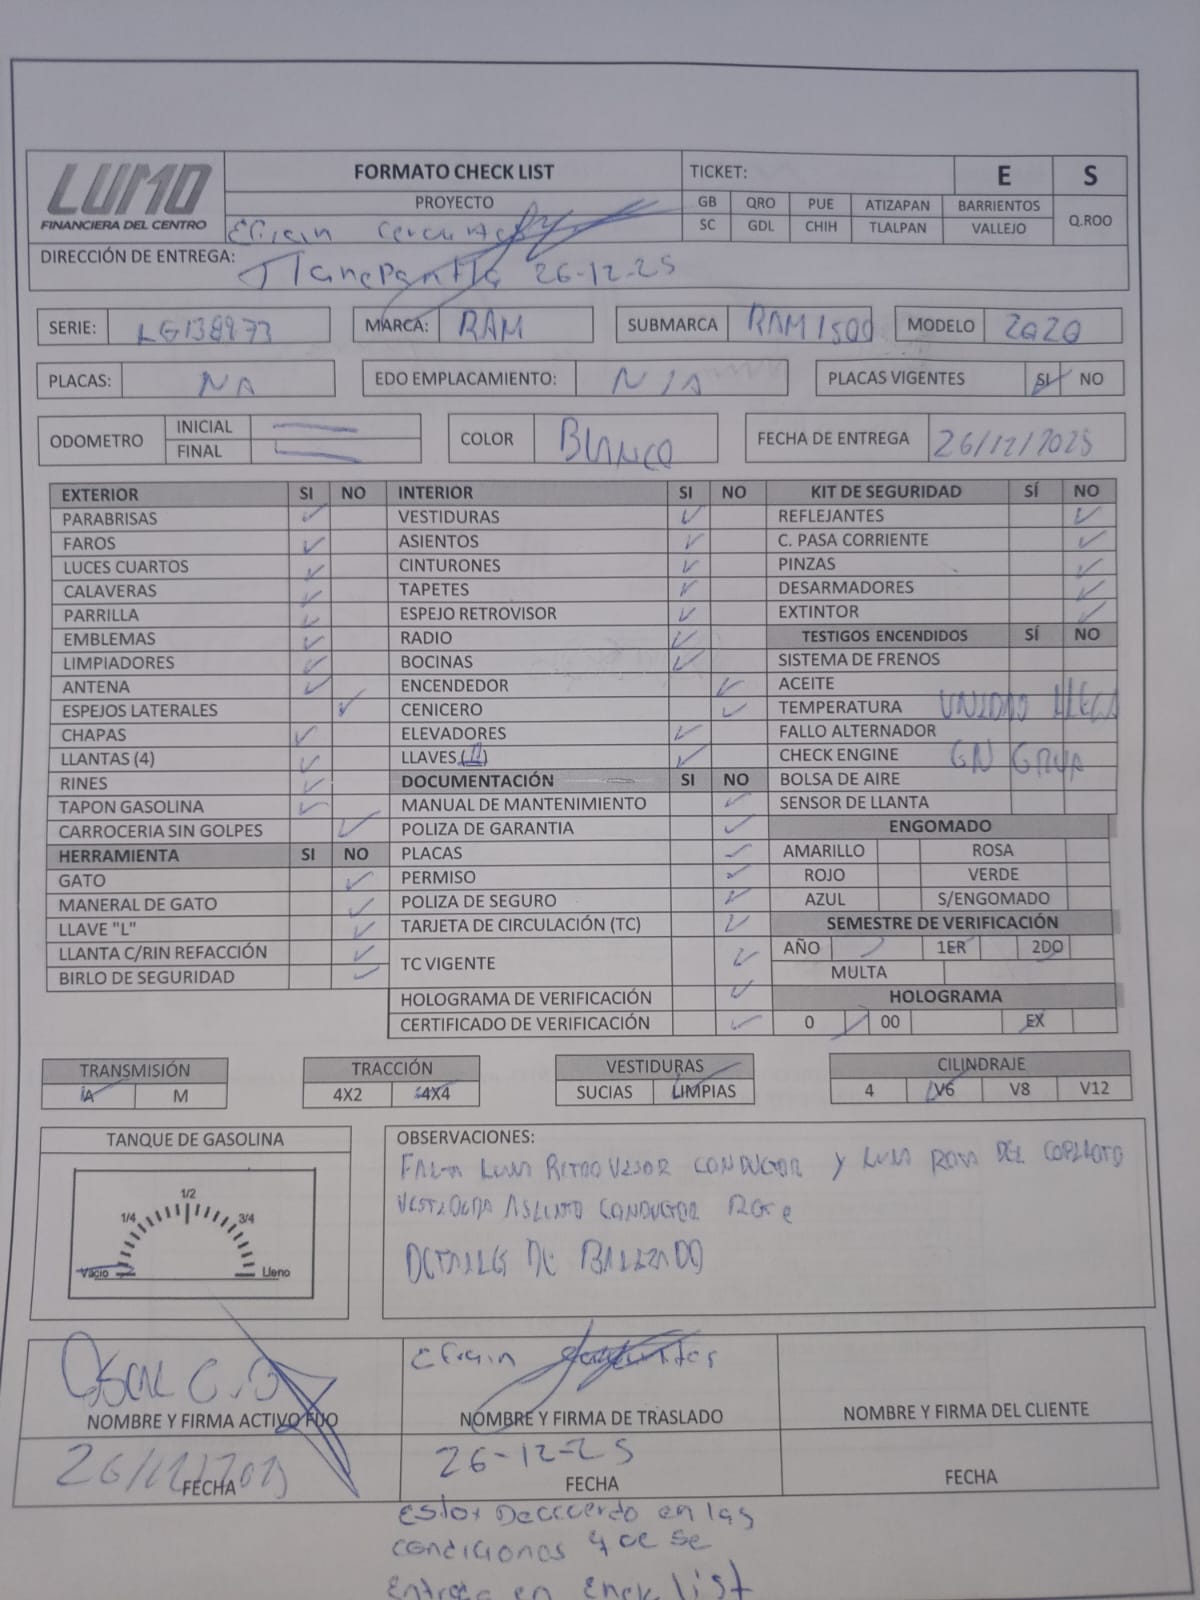 LUMO
FINANCIERA DEL CENTRO
FORMATO CHECK LIST
TICKET:
E
S
PROYECTO
GB QRO PUE ATIZAPAN BARRIENTOS
Q.ROO
SC GDL CHIH TLALPAN VALLEJO
Efrain
DIRECCIÓN DE ENTREGA:
Tlanepantla 26-12-25
SERIE: LG138973 MARCA: RAM SUBMARCA RAM 1500 MODELO 2020
PLACAS: NA EDO EMPLACAMIENTO: N/A PLACAS VIGENTES SI NO
ODOMETRO INICIAL
FINAL
COLOR BLANCO FECHA DE ENTREGA 26/12/2025
EXTERIOR SI NO INTERIOR SI NO KIT DE SEGURIDAD SÍ NO
PARABRISAS ✓ VESTIDURAS ✓ REFLEJANTES ✓
FAROS ✓ ASIENTOS ✓ C. PASA CORRIENTE ✓
LUCES CUARTOS ✓ CINTURONES ✓ PINZAS ✓
CALAVERAS ✓ TAPETES ✓ DESARMADORES ✓
PARRILLA ✓ ESPEJO RETROVISOR ✓ EXTINTOR ✓
EMBLEMAS ✓ RADIO ✓ TESTIGOS ENCENDIDOS SÍ NO
LIMPIADORES ✓ BOCINAS ✓ SISTEMA DE FRENOS
ANTENA ✓ ENCENDEDOR ✓ ACEITE
ESPEJOS LATERALES ✓ CENICERO ✓ TEMPERATURA UNIDAD LLEGA
CHAPAS ✓ ELEVADORES ✓ FALLO ALTERNADOR
LLANTAS (4) ✓ LLAVES ( ) ✓ CHECK ENGINE EN GRUA
RINES ✓ DOCUMENTACIÓN SI NO BOLSA DE AIRE
TAPON GASOLINA ✓ MANUAL DE MANTENIMIENTO ✓ SENSOR DE LLANTA
CARROCERIA SIN GOLPES ✓ POLIZA DE GARANTIA ✓ ENGOMADO
HERRAMIENTA SI NO PLACAS ✓ AMARILLO ROSA
GATO ✓ PERMISO ✓ ROJO VERDE
MANERAL DE GATO ✓ POLIZA DE SEGURO ✓ AZUL S/ENGOMADO
LLAVE "L" ✓ TARJETA DE CIRCULACIÓN (TC) ✓ SEMESTRE DE VERIFICACIÓN
LLANTA C/RIN REFACCIÓN ✓ TC VIGENTE ✓ AÑO 1ER 2DO
BIRLO DE SEGURIDAD ✓ MULTA
HOLOGRAMA DE VERIFICACIÓN ✓ HOLOGRAMA
CERTIFICADO DE VERIFICACIÓN ✓ 0 00 EX
TRANSMISIÓN TRACCIÓN VESTIDURAS CILINDRAJE
A M 4X2 4X4 SUCIAS LIMPIAS 4 V6 V8 V12
TANQUE DE GASOLINA
1/2
1/4 3/4
Vacio Lleno
OBSERVACIONES:
FALTA LUNA RETROVISOR CONDUCTOR Y LUNA ROTA DEL COPILOTO
VESTIDURA ASIENTO CONDUCTOR ROTA
DETALLES DE BALIZADO
OSCAR C.O
NOMBRE Y FIRMA ACTIVO FIJO
26/12/2025
FECHA
Efrain
NOMBRE Y FIRMA DE TRASLADO
26-12-25
FECHA
NOMBRE Y FIRMA DEL CLIENTE
FECHA
Estoy Deacuerdo en las
condiciones que se
Entrega en Chek list